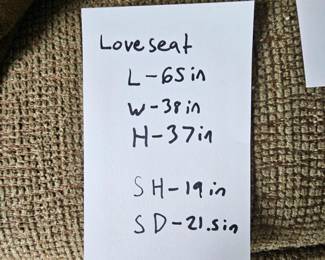 Loveseat
L-65in
W-38in
H-37in
SH-19in
SD-21.5in